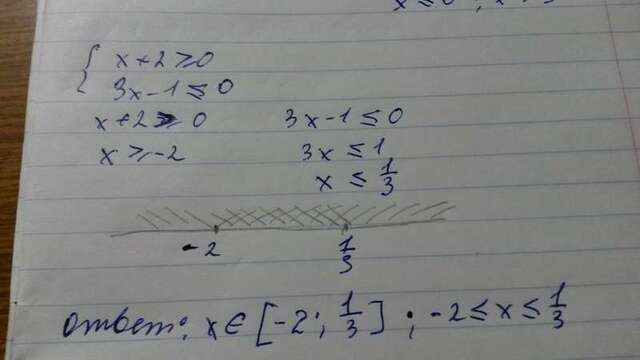 { x+2≥0
3x-1≤0
x+2≥0 3x-1≤0
x≥-2 3x≤1
x≤1/3
-2 1/3
ответ: x∈[-2; 1/3]; -2≤x≤1/3